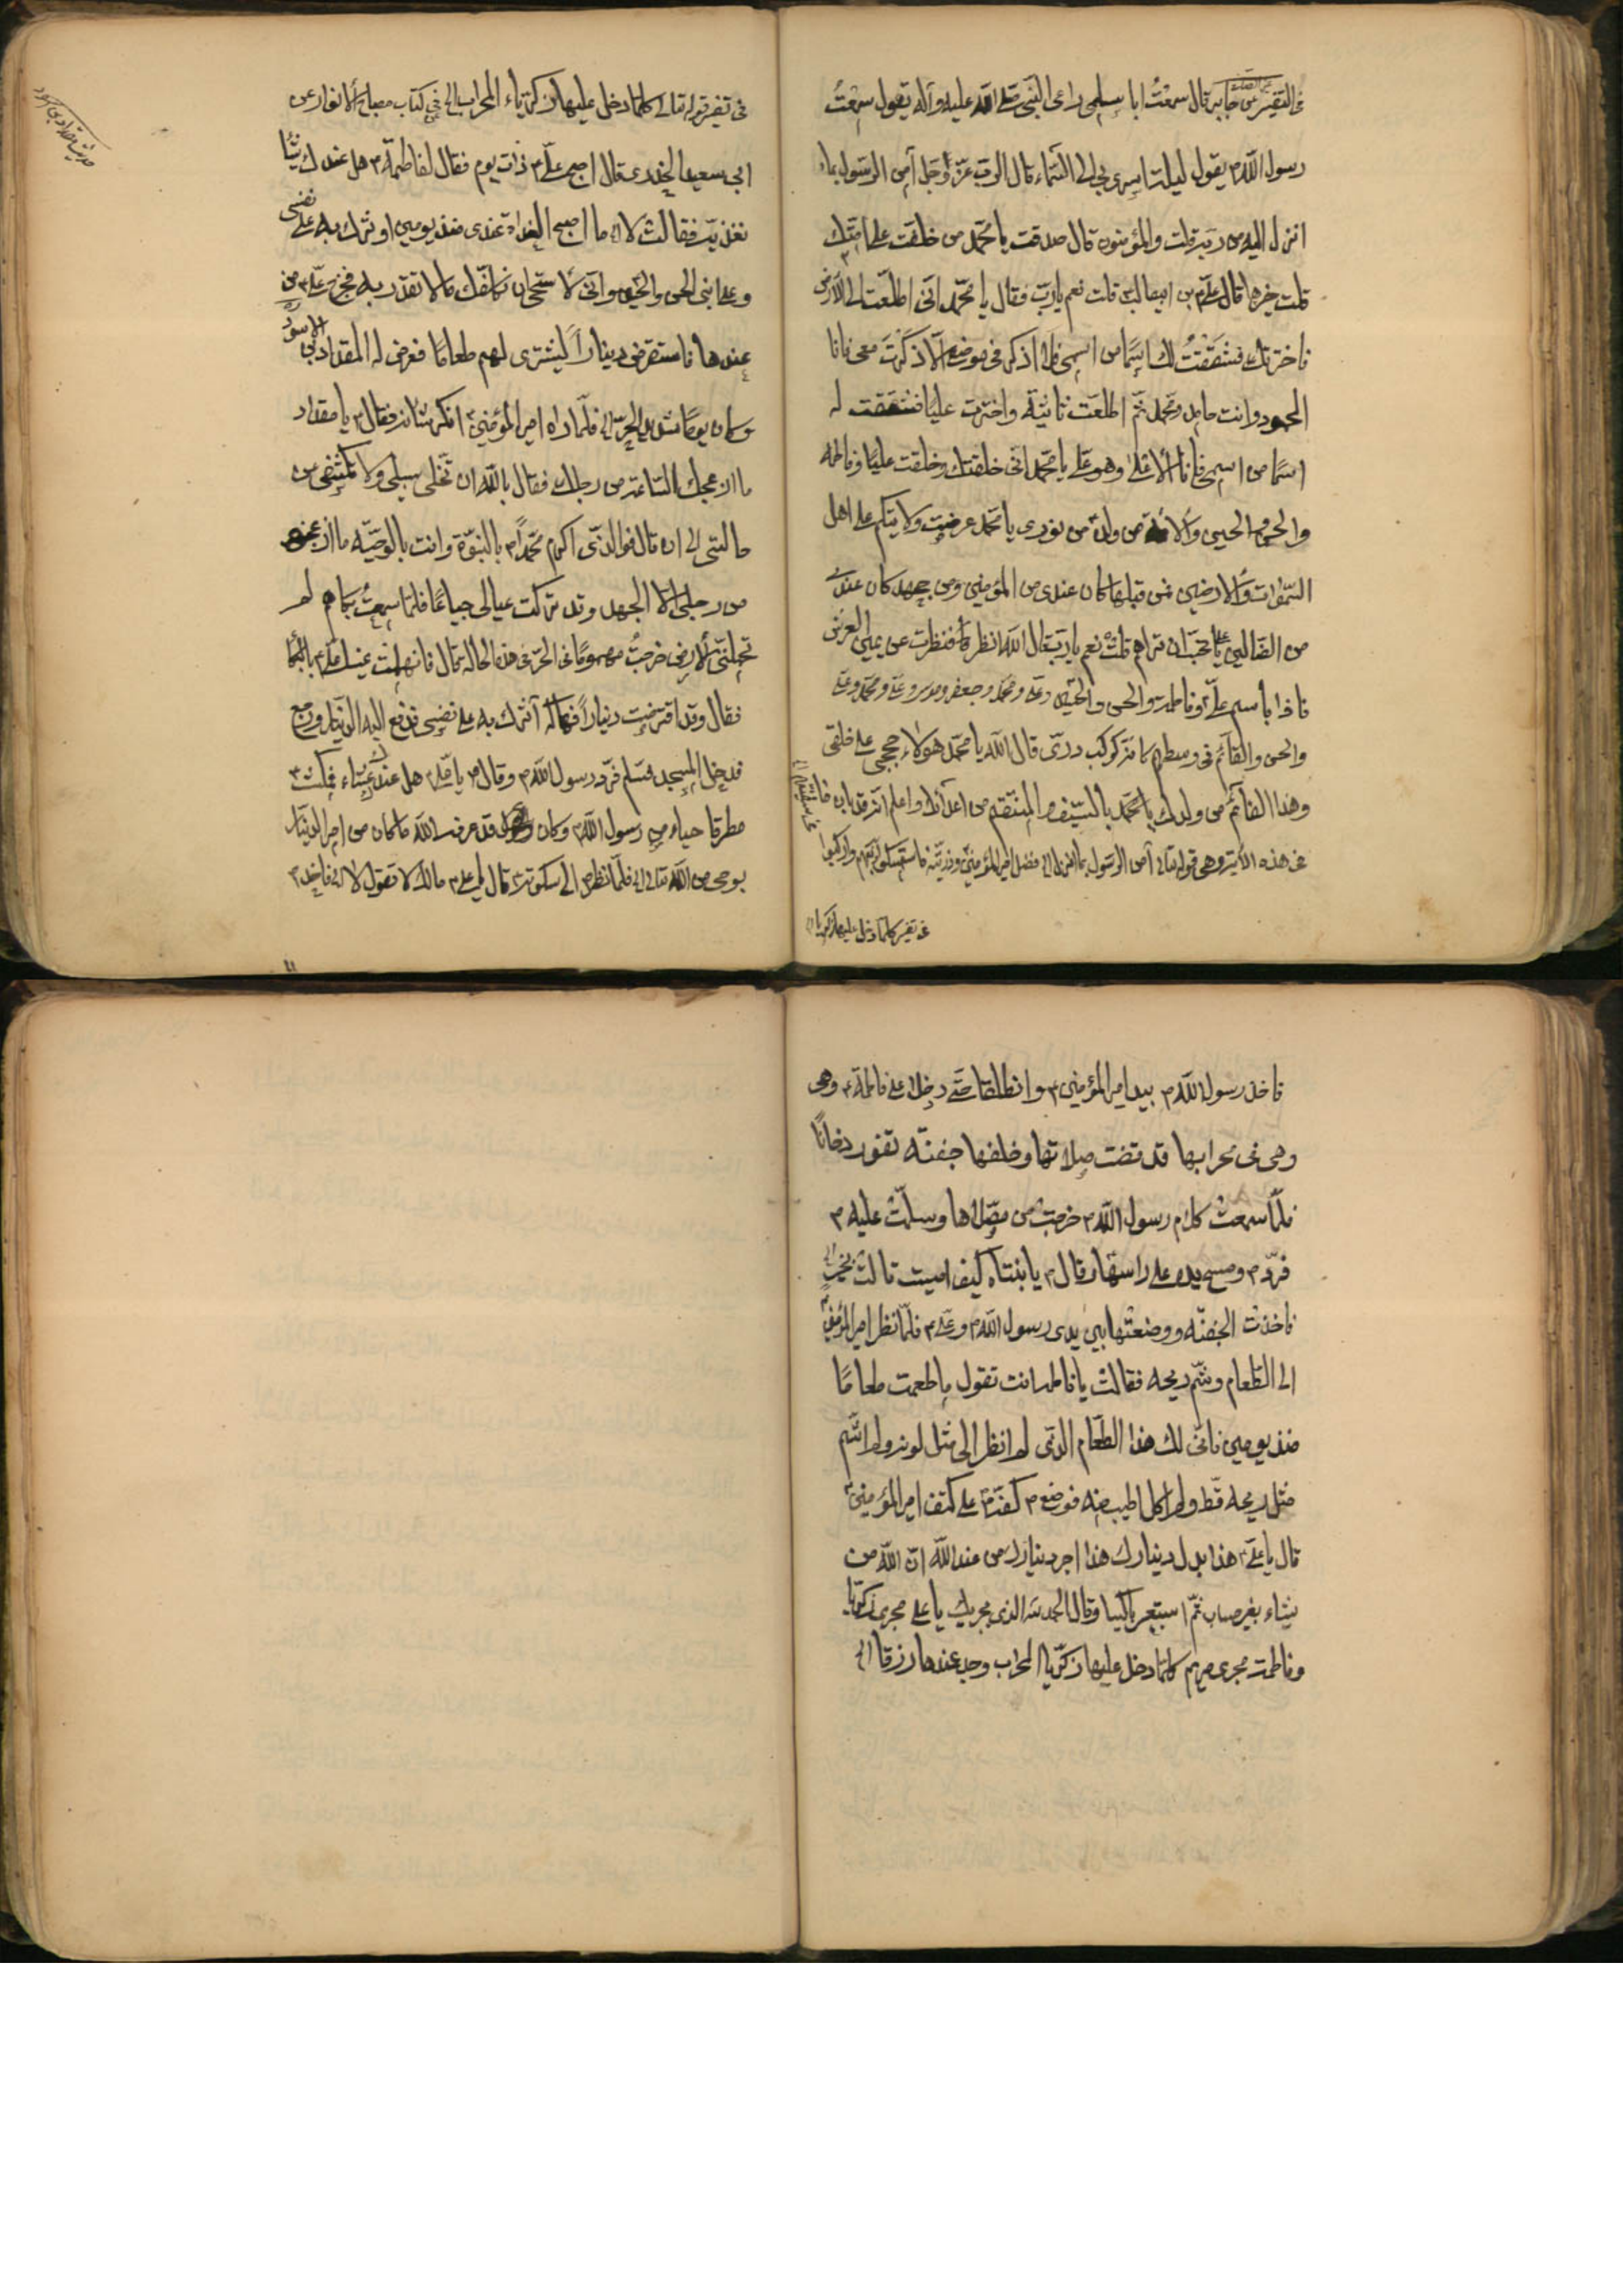 فى التفسير عن جابر قال سمعت ابا سلمى راعى النبى صلى الله عليه وآله يقول سمعت
رسول الله ص يقول ليلة اسرى بى الى السماء قال الرب عز وجل آمن الرسول بما
انزل اليه من ربه قلت والمؤمنون قال صدقت يا محمد من خلفت على امتك
قلت خيرها قال على بن ابيطالب قلت نعم يا رب فقال يا محمد انى اطلعت الى الارض
فاخترتك فشققت لك اسما من اسمى فلا اذكر فى موضع الا ذكرت معى فانا
المحمود وانت محمد ثم اطلعت ثانية واخترت عليا فشققت له
اسما من اسمى فانا الاعلى وهو على يا محمد انى خلقتك وخلقت عليا وفاطمه
والحسن والحسين والائمة من ولده من نورى يا محمد عرضت ولايتكم على اهل
السموات والارضين فمن قبلها كان عندى من المؤمنين ومن جحد كان عندى
من الضالين يا محمد تحب ان تراهم قلت نعم يا رب قال الله انظر فنظرت عن يمين العرش
فاذا باسم على وفاطمة والحسن والحسين وعلى ومحمد وجعفر وموسى وعلى ومحمد وعلى
والحسن والقائم فى وسطهم كانه كوكب درى قال الله يا محمد هولاء حججى على خلقى
وهذا القائم من ولدك يا محمد بالسيف المنتقم من اعدائك واعلم انه قد بان
عن هذه الآية وهى قوله تعالى آمن الرسول بما انزل الى فضل امير المؤمنين وذريته فاستمسكوا بهم واركبوا
فى تفسير كلما دخل عليها زكريا
فى تفسير قوله تعالى كلما دخل عليها زكرياء المحراب الخ فى كتاب مصباح الانوار عن
ابى سعيد الخدرى قال اصبح على ع ذات يوم فقال لفاطمة ع هل عندك شيئا
نغذيه فقالت لا ما اصبح الغداة عندى منذ يومين اوثرك به على نفسى
وعلى ابنى الحسن والحسين وانى لاستحى ان تكلفك ما لا تقدر به فخرج على ع من
عندها فاستقرض دينارا ليشترى لهم طعاما فعرض له المقداد بن الاسود
وكان يوما شديد الحر فلما راه امير المؤمنين ع انكر شانه فقال ع يا مقداد
ما ازعجك الساعة من رحلك فقال بالله ان تخلى سبيلى ولا تكشفنى من
حالتى الى ان قال فوالذى اكرم محمدا ص بالنبوة وانت بالوصية ما ازعجنى
من رحلى الا الجهد وقد تركت عيالى جياعا فلما سمعت بكاهم لم
تحملنى الارض خرجت مهموما فى الحر فى هذه الحالة قال فانهملت عينا على ع بالبكا
فقال وقد اقترضت دينارا فهاكه آثرك به على نفسى فدفع اليه الدينار ورجع
فدخل المسجد فسلم فرد رسول الله ص وقال ص يا على ع هل عندك عشاء فمكث ع
مطرقا حياء من رسول الله ص وكان قد عرف الله ما كان من امر الدينار
بوحى من الله تعالى فلما نظر ص الى سكوته قال يا على ع مالك لا تقول لا
فاخذ رسول الله ص بيد امير المؤمنين ع وانطلقا حتى دخلا على فاطمة ع وهى
وهى فى محرابها قد قضت صلاتها وخلفها جفنة تفور دخانا
فلما سمعت كلام رسول الله ص خرجت من مصلاها وسلمت عليه ص
فرد ص ومسح يده على راسها وقال ص يا بنتاه كيف امسيت قالت بخير
فاخذت الجفنة ووضعتها بين يدى رسول الله ص وعلى ع فلما نظر امير المؤمنين ع
الى الطعام وشم ريحه فقالت يا فاطمة انت تقول ما طعمت طعاما
منذ يومين فانى لك هذا الطعام الذى لم انظر الى مثل لونه ولم اشم
مثل ريحه قط ولم اكل اطيب منه فوضع ص كفه على كتف امير المؤمنين ع
قال يا على ع هذا بدل دينارك هذا اجر دينارك من عند الله ان الله من
يشاء بغير حساب ثم استعبر باكيا وقال الحمد لله الذى يجريك يا على مجرى زكريا
وفاطمة مجرى مريم كلما دخل عليها زكريا المحراب وجد عندها رزقا الخ